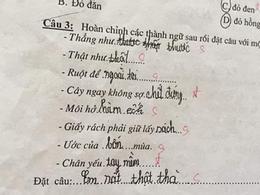 B. Đỏ đăn
C) đỏ đen
đ) đỏ hồng
Câu 3: Hoàn chỉnh các thành ngữ sau rồi đặt câu với một
- Thẳng như thước S
- Thật như thật S
- Ruột để ngoài S
- Cây ngay không sợ chết đứng đ
- Môi hở hàm S
- Giấy rách phải giữ lấy rách S
- Ước của bốn mùa. S
- Chân yếu tay mềm đ
Đặt câu: Em rất thật thà S